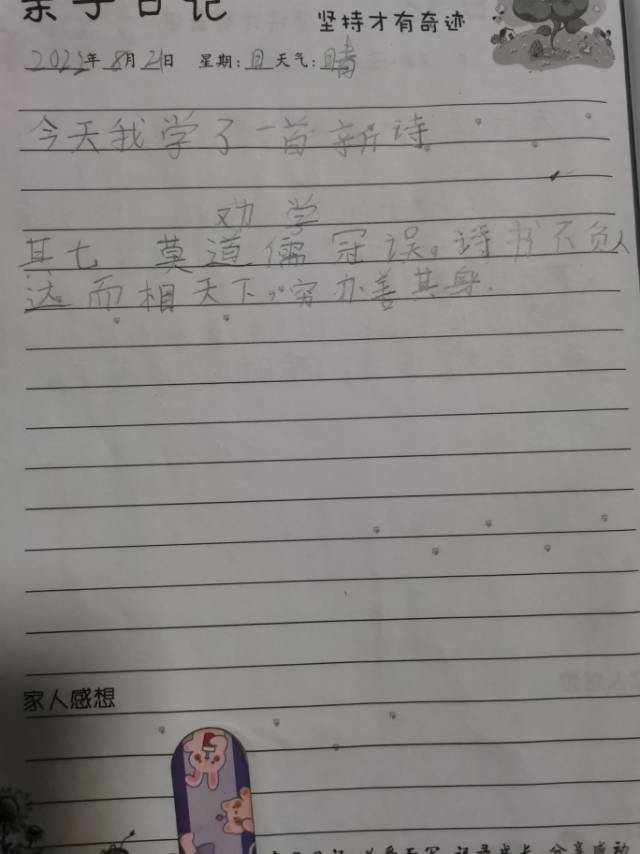 亲子日记
坚持才有奇迹
2022年 8月 21日 星期:日 天气:晴
今天我学了一首新诗
劝学
其七 莫道儒冠误。诗书不负人
达而相天下,穷亦善其身.
家人感想